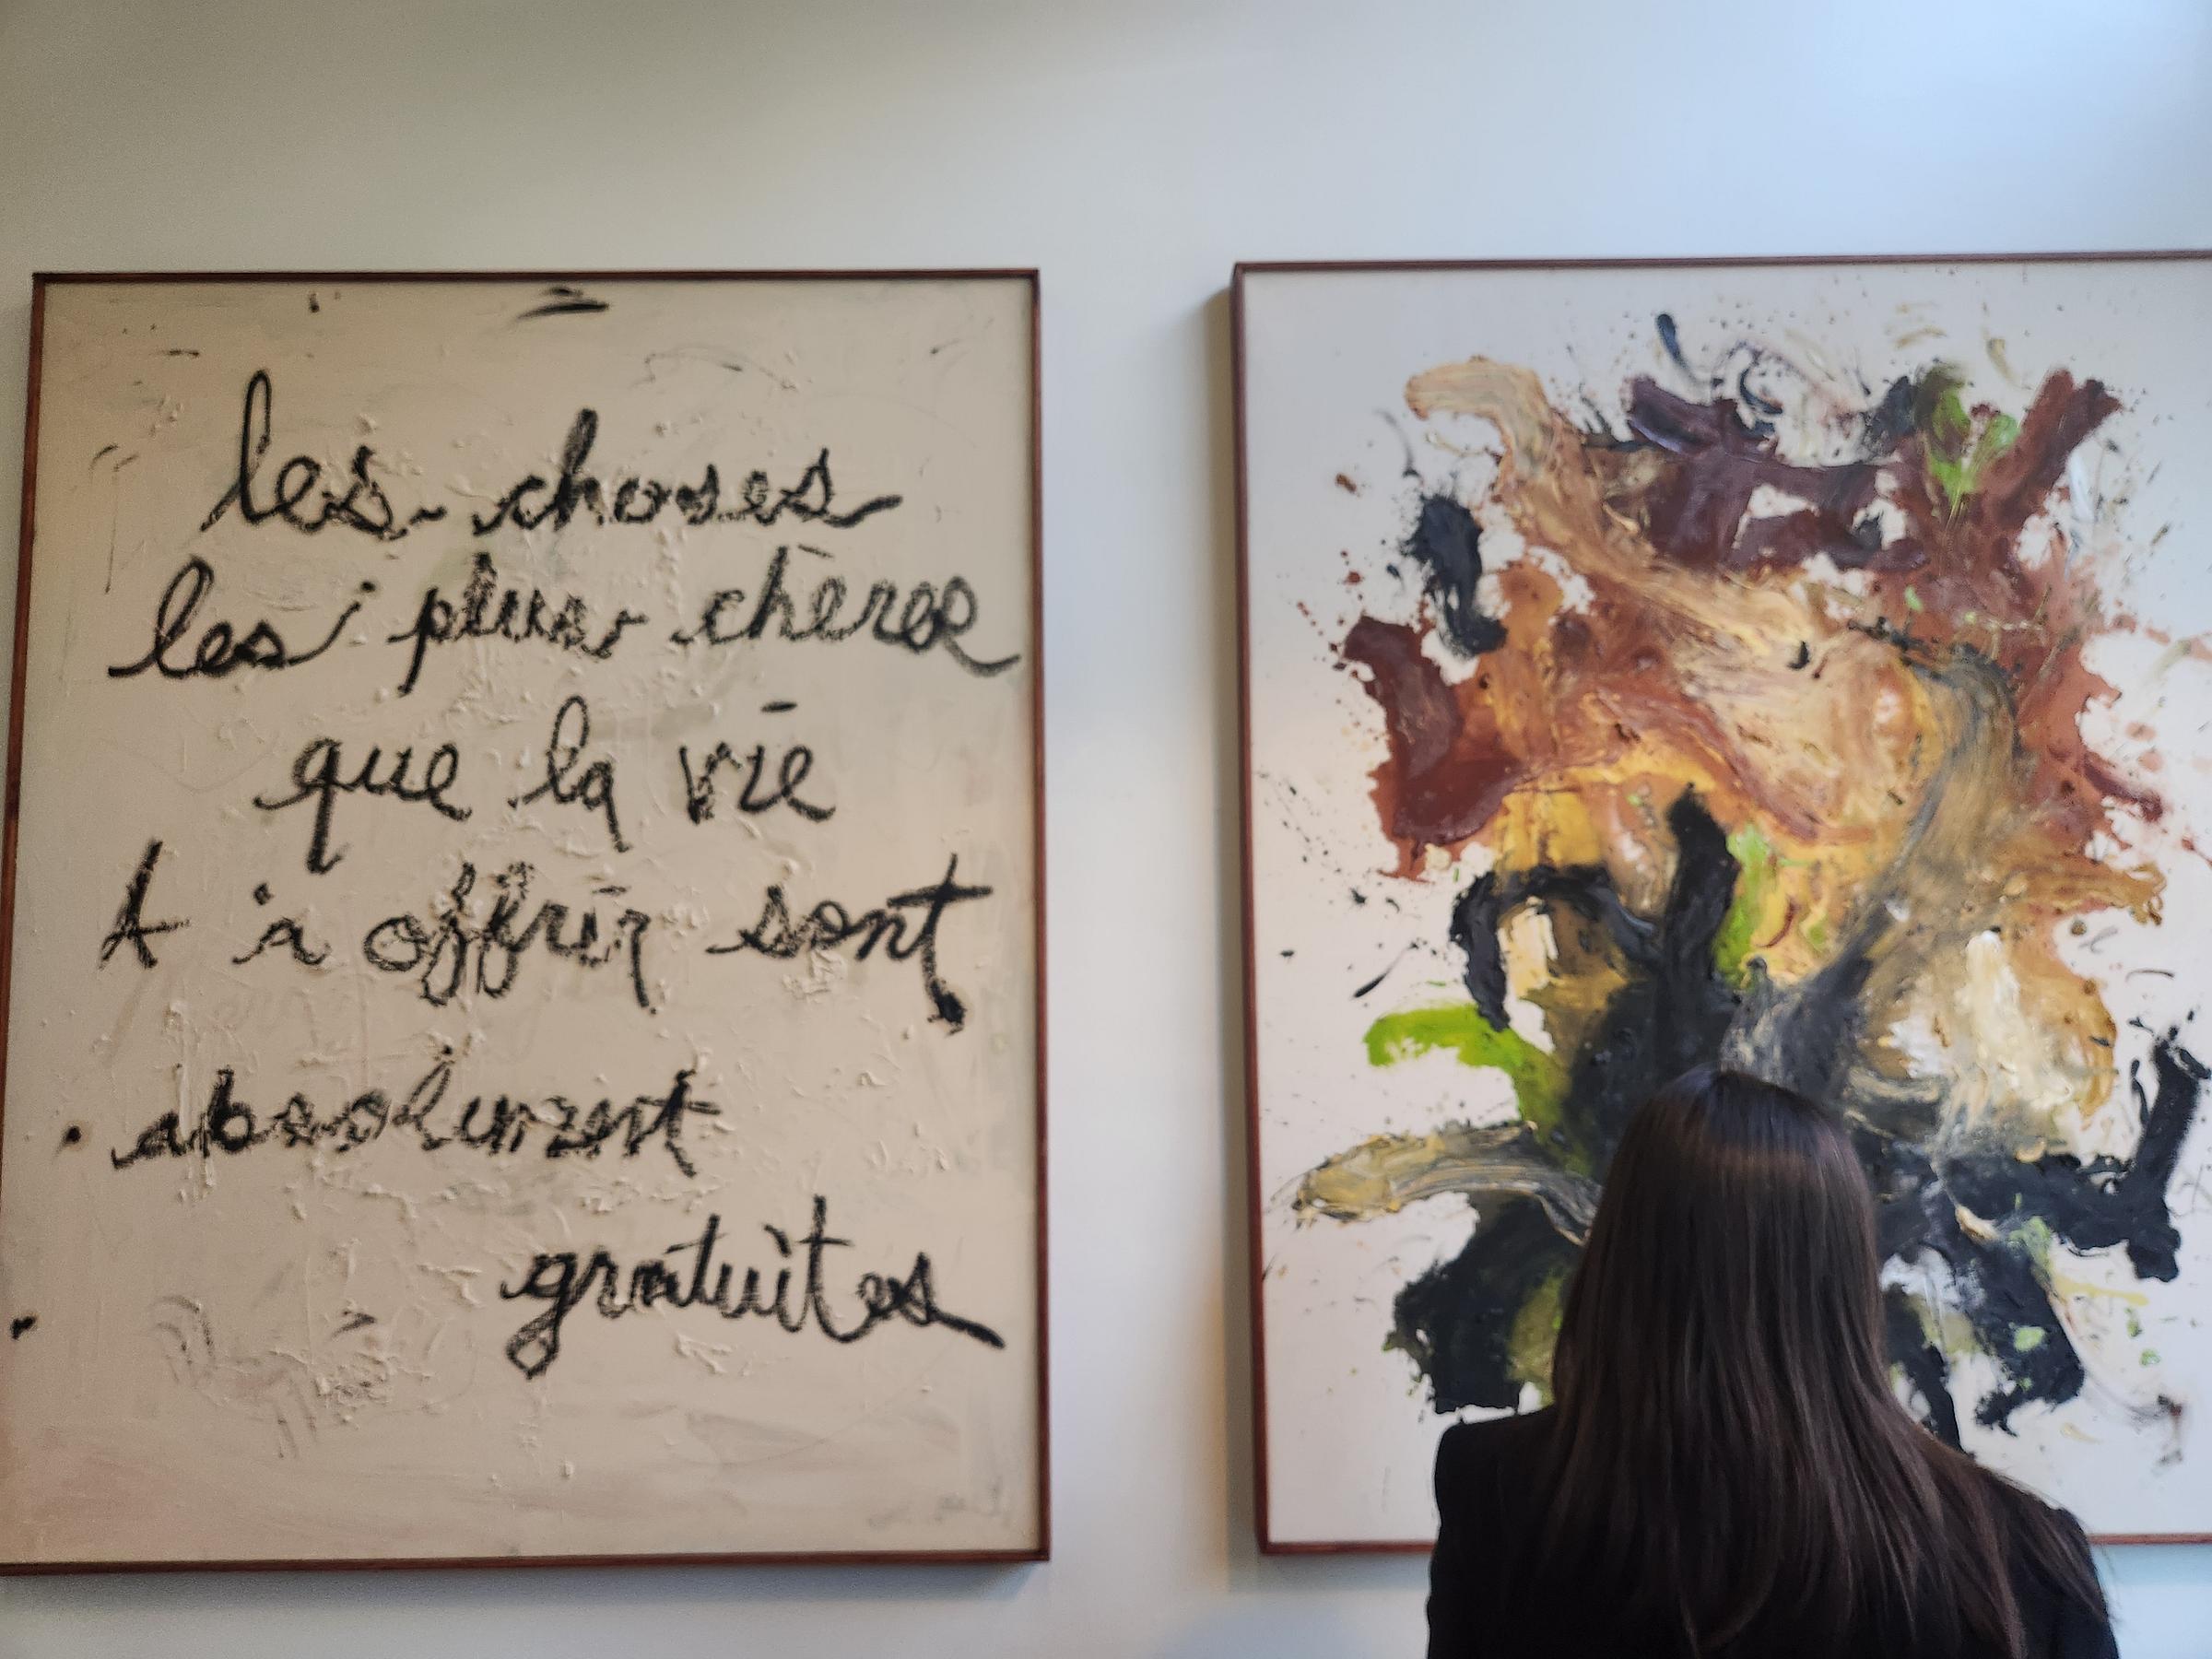 les choses
les plus chères
que la vie
A à offrir sont
absolument
gratuites